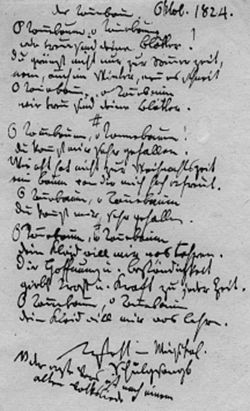 der Tannebaum Okdob. 1824.
O Tannebaum, o Tannebaum!
wie treu sind deine Blätter!
Du grünst nicht nur zur Sommerzeit,
nein, auch im Winter, wenn es schneit
O Tannebaum, o Tannebaum
wie treu sind deine Blätter.
O Tannebaum, o Tannebaum!
du kannst mir sehr gefallen.
Wie oft hat nicht zur Weihnachtszeit
ein Baum von dir mich hoch erfreut.
O Tannebaum, o Tannebaum
du kannst mir sehr gefallen.
O Tannebaum, o Tannebaum
dein Kleid will mich was lehren.
Die Hoffnung u. Beständigkeit
giebt Trost u. Kraft zu jeder Zeit.
O Tannebaum, o Tannebaum
dein Kleid will mich was lehren.
der erste Vers ist nach einem
alten Volksliede